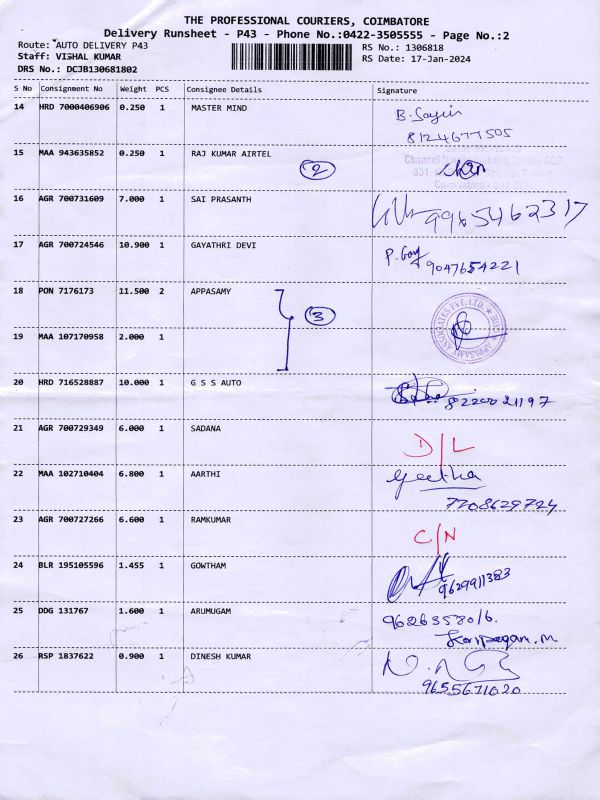 THE PROFESSIONAL COURIERS, COIMBATORE
Delivery Runsheet - P43 - Phone No.:0422-3505555 - Page No.:2
Route: AUTO DELIVERY P43 RS No.: 1306818
Staff: VISHAL KUMAR RS Date: 17-Jan-2024
DRS No.: DCJB130681802
S No Consignment No Weight PCS Consignee Details Signature
14 HRD 7000406906 0.250 1 MASTER MIND
8124677505
15 MAA 943635852 0.250 1 RAJ KUMAR AIRTEL
2
16 AGR 700731609 7.000 1 SAI PRASANTH
9965462317
17 AGR 700724546 10.900 1 GAYATHRI DEVI P. Gay
9047654221
18 PON 7176173 11.500 2 APPASAMY
3
APPASAMY ASSOCIATES PVT. LTD.
19 MAA 107170958 2.000 1
20 HRD 716528887 10.000 1 G S S AUTO 8220021197
21 AGR 700729349 6.000 1 SADANA
D/L
22 MAA 102710404 6.800 1 AARTHI geetha
7708629724
23 AGR 700727266 6.600 1 RAMKUMAR
C/N
24 BLR 195105596 1.455 1 GOWTHAM
9629911383
25 DDG 131767 1.600 1 ARUMUGAM
26 RSP 1837622 0.900 1 DINESH KUMAR
9655671020